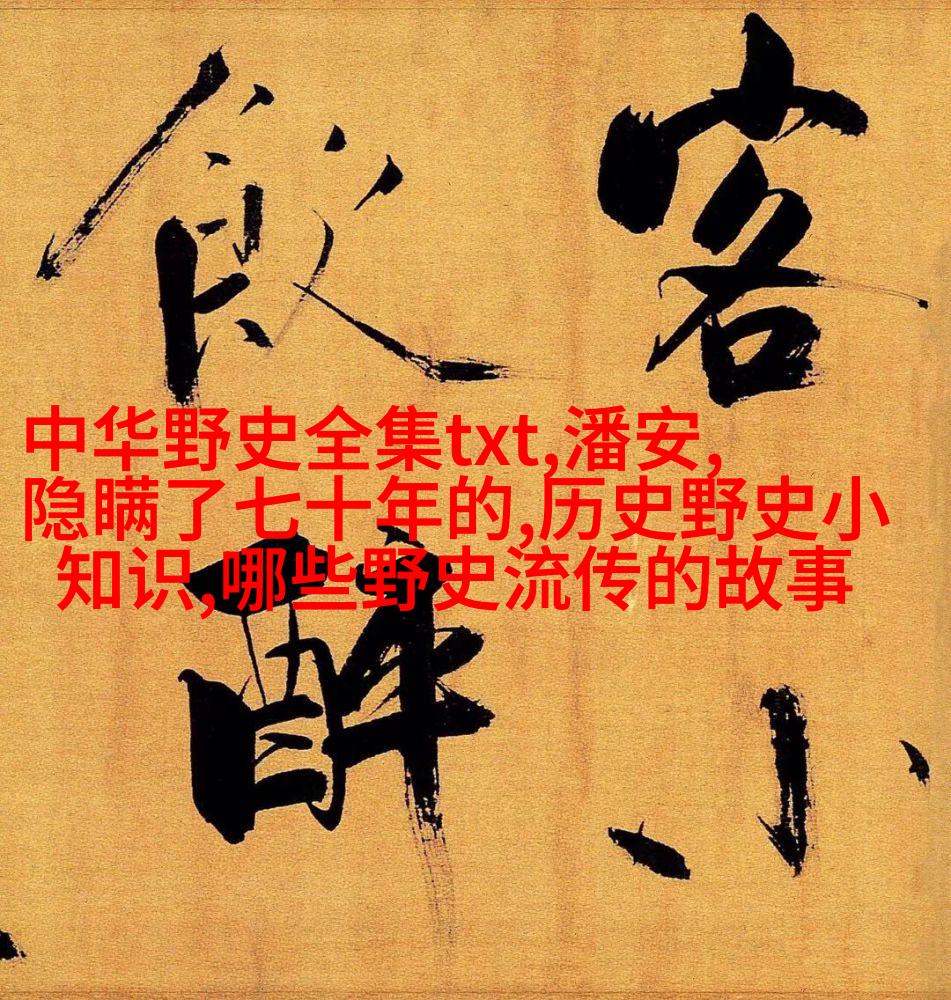 客小
飲醉
中华野史全集txt,潘安,
隐瞒了七十年的,历史野史小
知识,哪些野史流传的故事